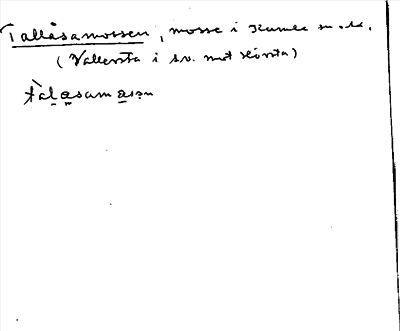 Tallåsamossen, mosse i Kumla sn o. hd.
(Vallersta i sv. mot Hörsta)
tàlasamasən